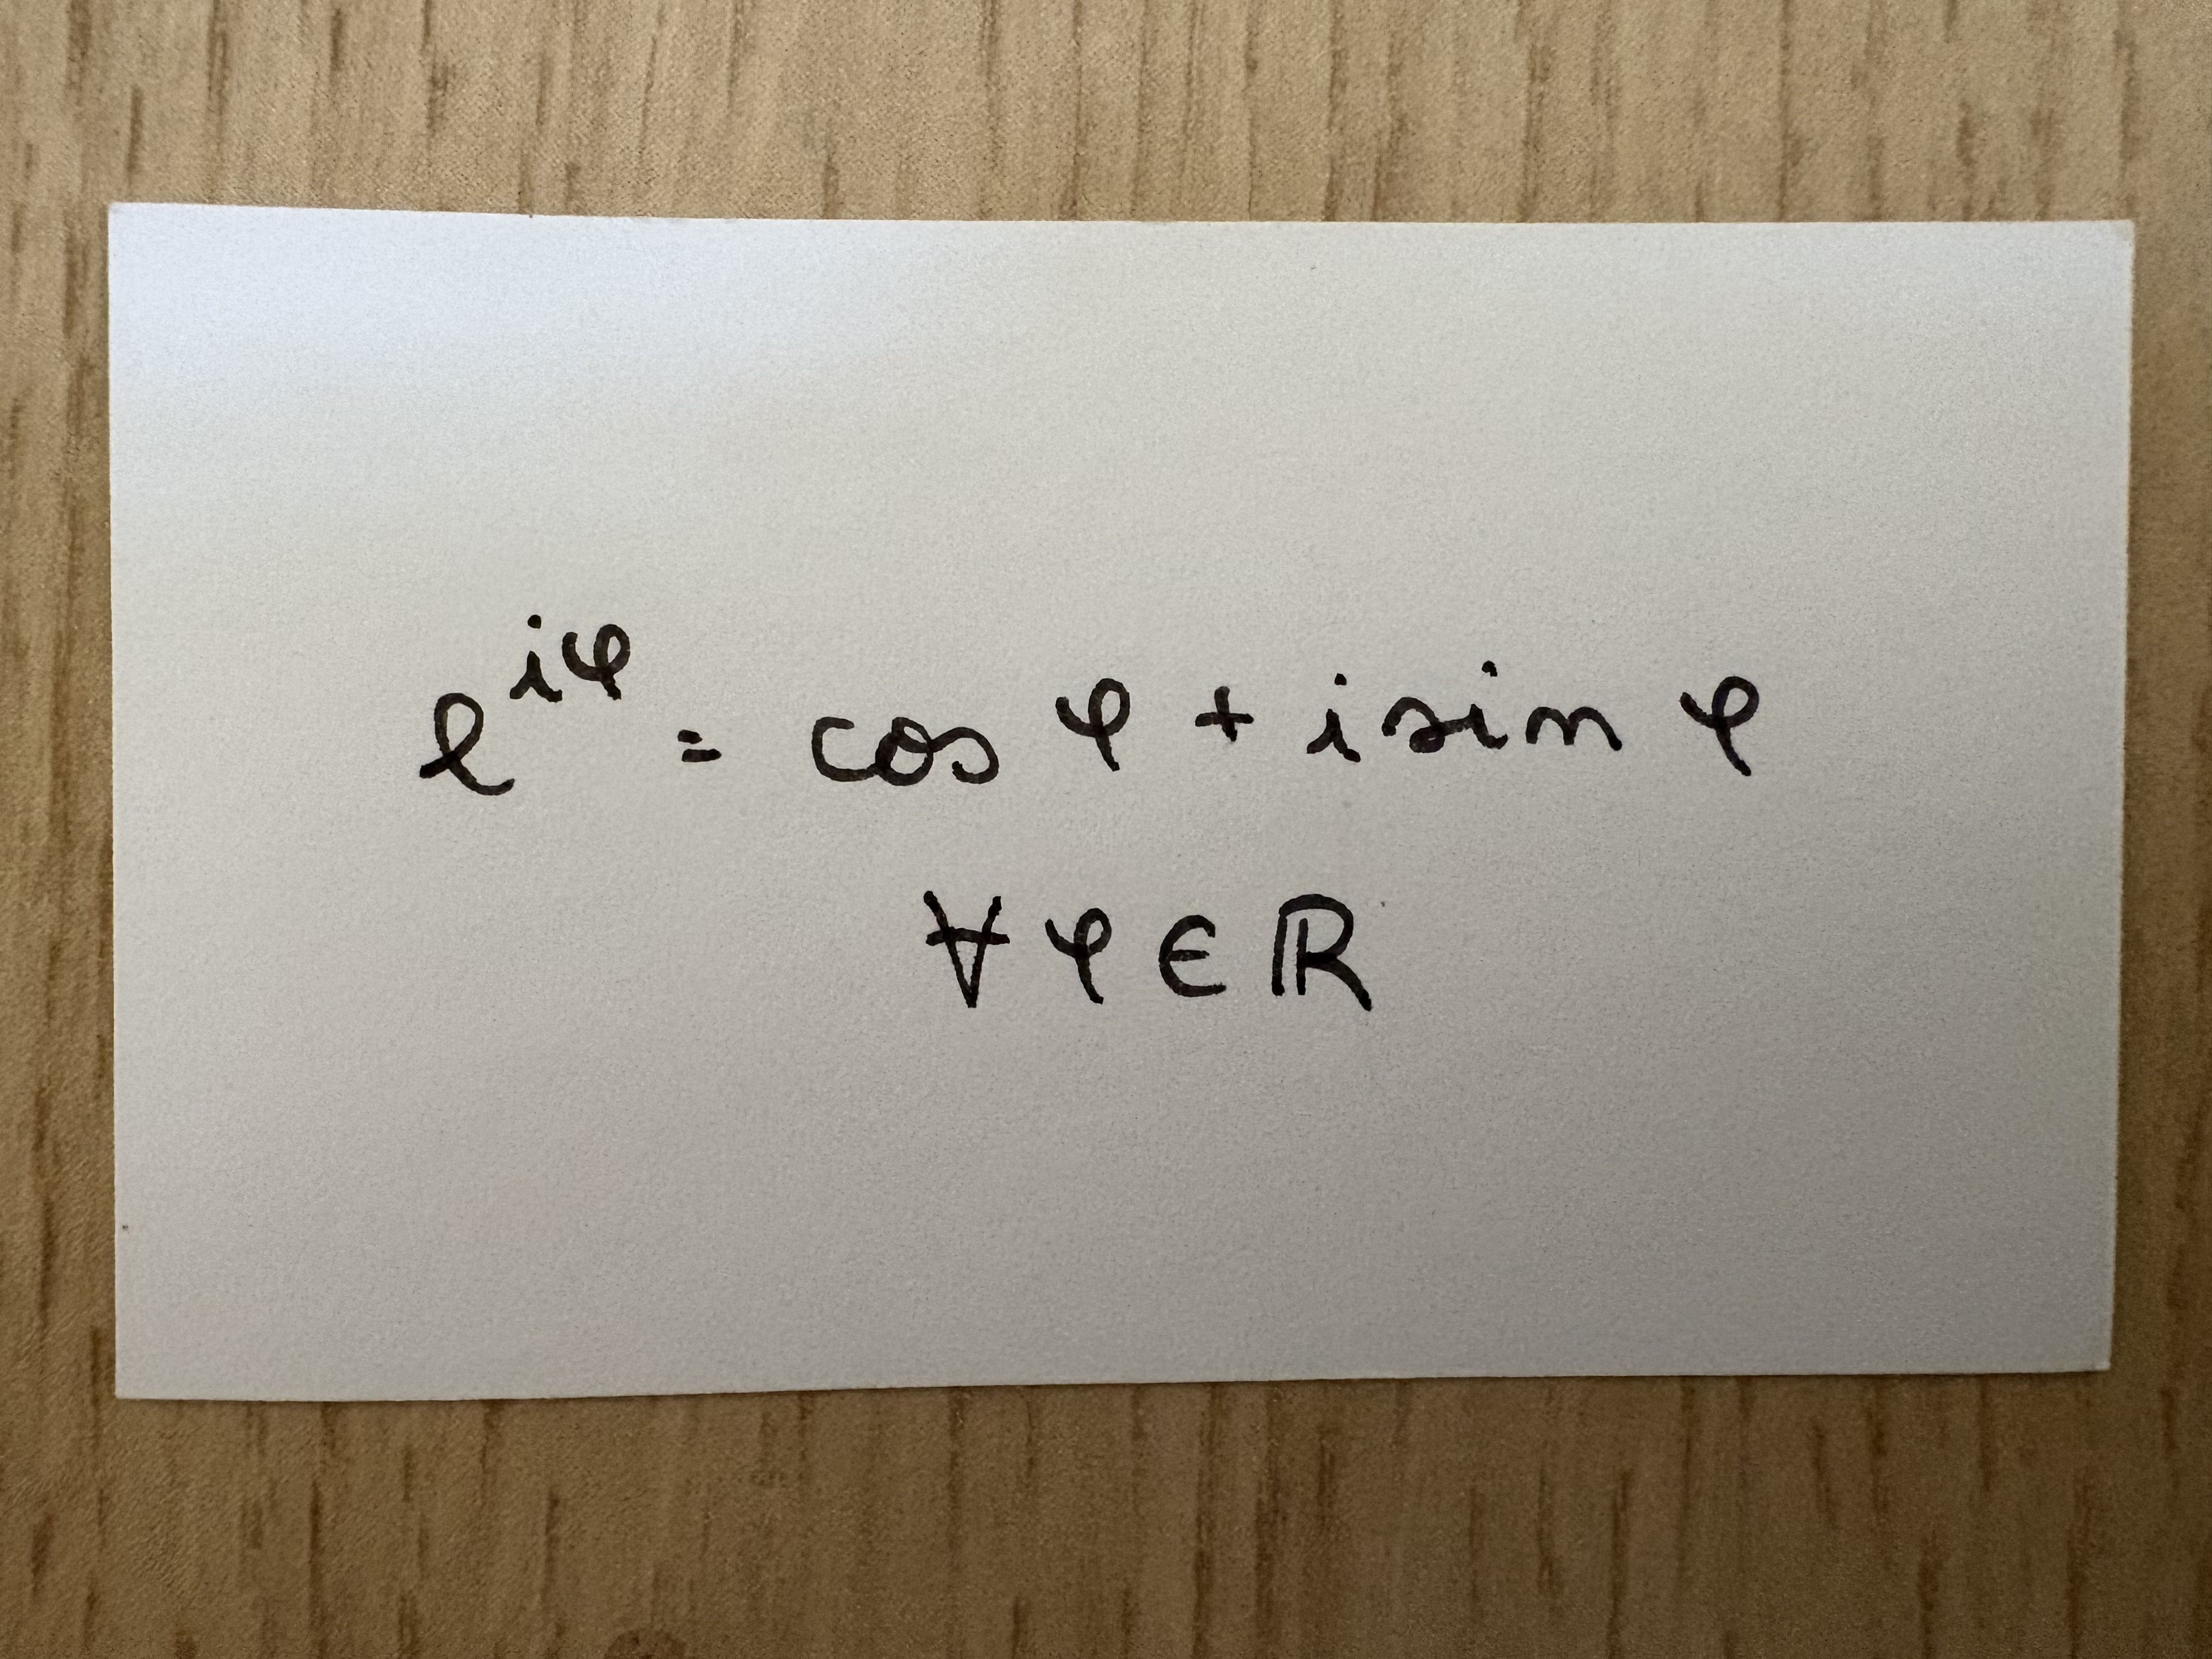 e^{iφ} = cos φ + i sin φ
∀ φ ∈ ℝ